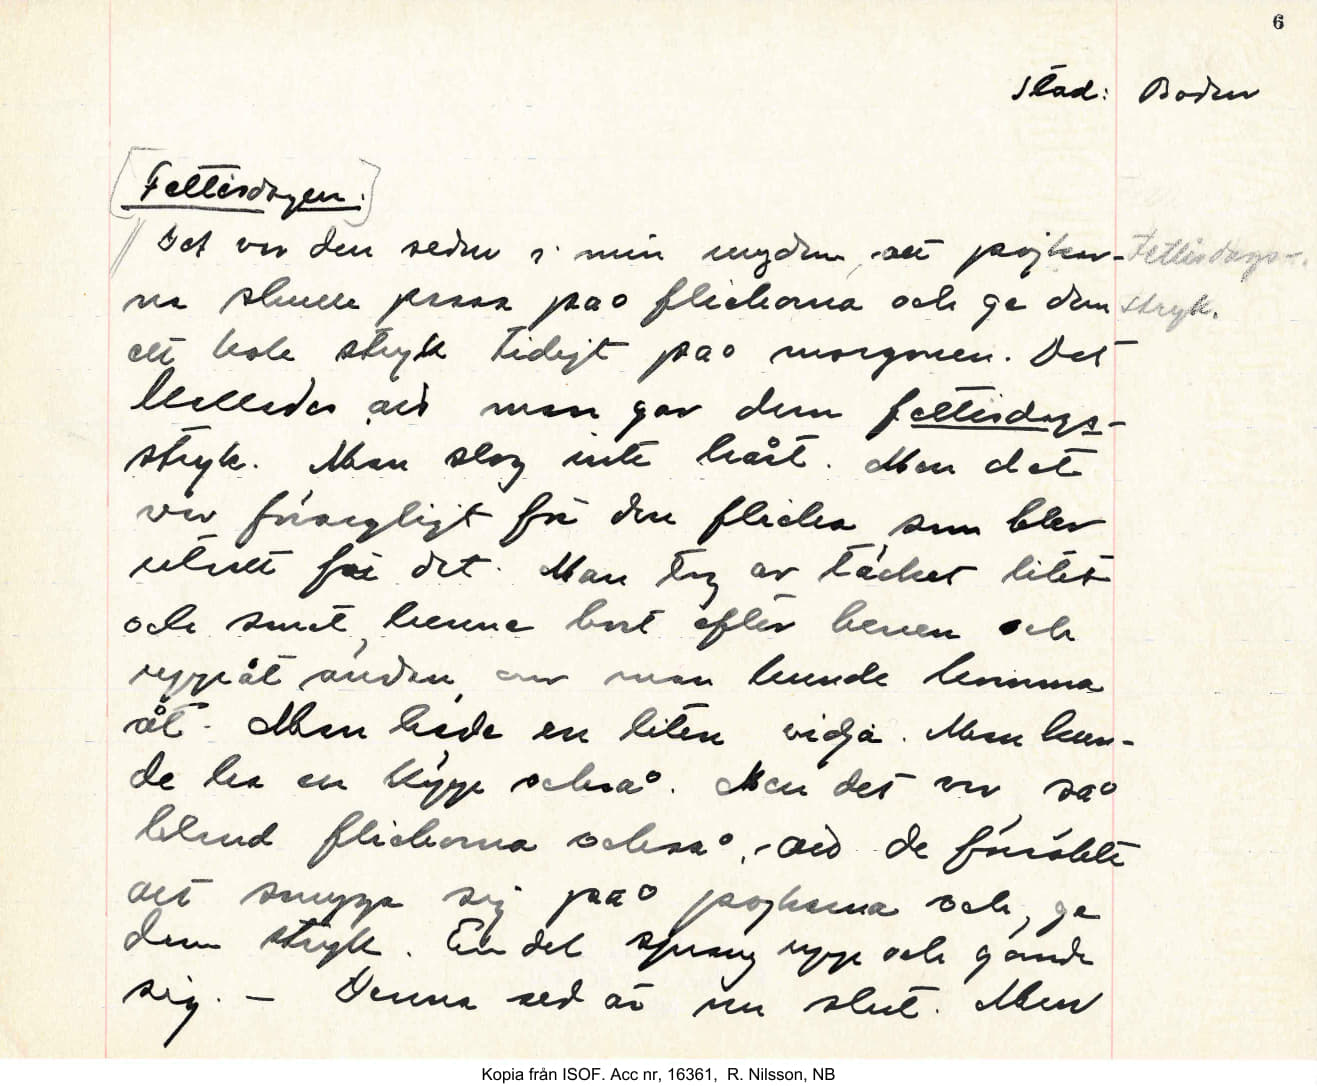 6
Stad: Boden
[Fettisdagen.]
Det var den seden i min ungdom, att pojkar- Fettisdags-
na skulle passa på flickorna och ge dem stryk.
ett kok stryk tidigt på morgonen. Det
kallades att man gav dem fettisdags-
stryk. Man slog inte hårt. Men det
var försmädligt för den flicka som blev
utsatt för det. Man tog av täcket litet
och smat henne bort efter benen och
uppåt ändan, om man kunde komma
åt. Man hade en liten vidja. Man kun-
de ha en käpp också. Men det var så
bland flickorna också, att de försökte
att smyga sig på pojkarna och ge
dem stryk. En del sprang upp och gömde
sig. — Denna sed är nu slut. Men
Kopia från ISOF. Acc nr, 16361, R. Nilsson, NB